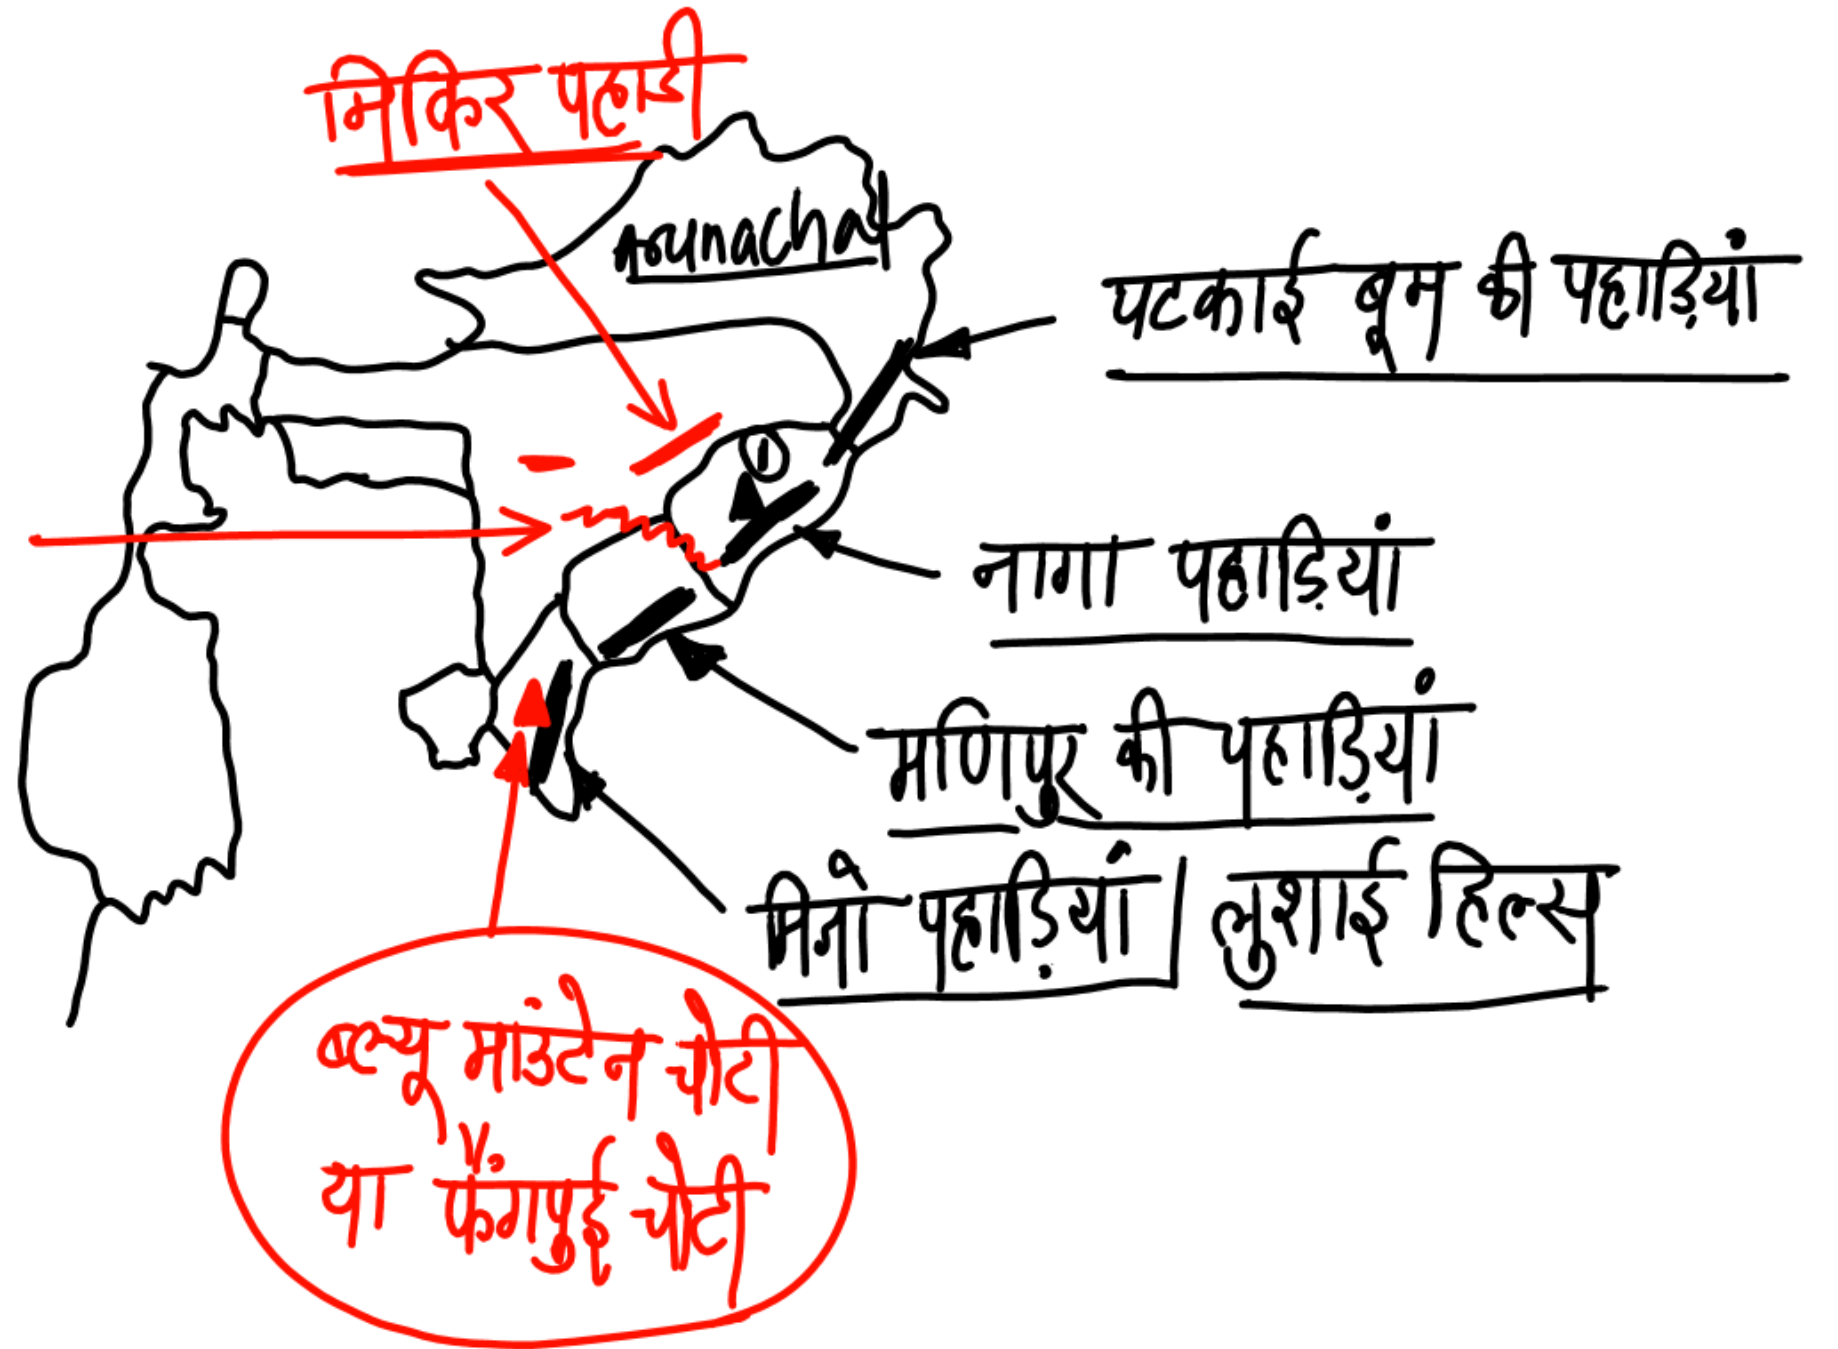 मिकिर पहाडी
Arunachal
पटकाई बूम की पहाड़ियां
①
नागा पहाड़ियां
मणिपुर की पहाड़ियां
मिजो पहाड़ियां | लुशाई हिल्स
ब्ल्यू माउंटेन चोटी
या फैंगपुई चोटी